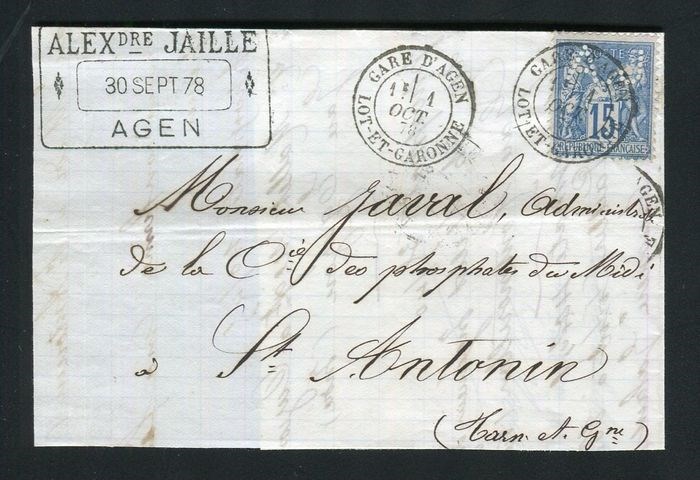 ALEXDRE JAILLE
30 SEPT 78
AGEN
GARE D'AGEN
1E 1
OCT.
78
LOT-ET-GARONNE
GARE D'AGEN
LOT-ET-GARONNE
POSTE
15
REPUBLIQUE FRANÇAISE
AGEN
Monsieur Javal, Administr
de la Cie des phosphates du Midi
à St Antonin
(Tarn et Gne)